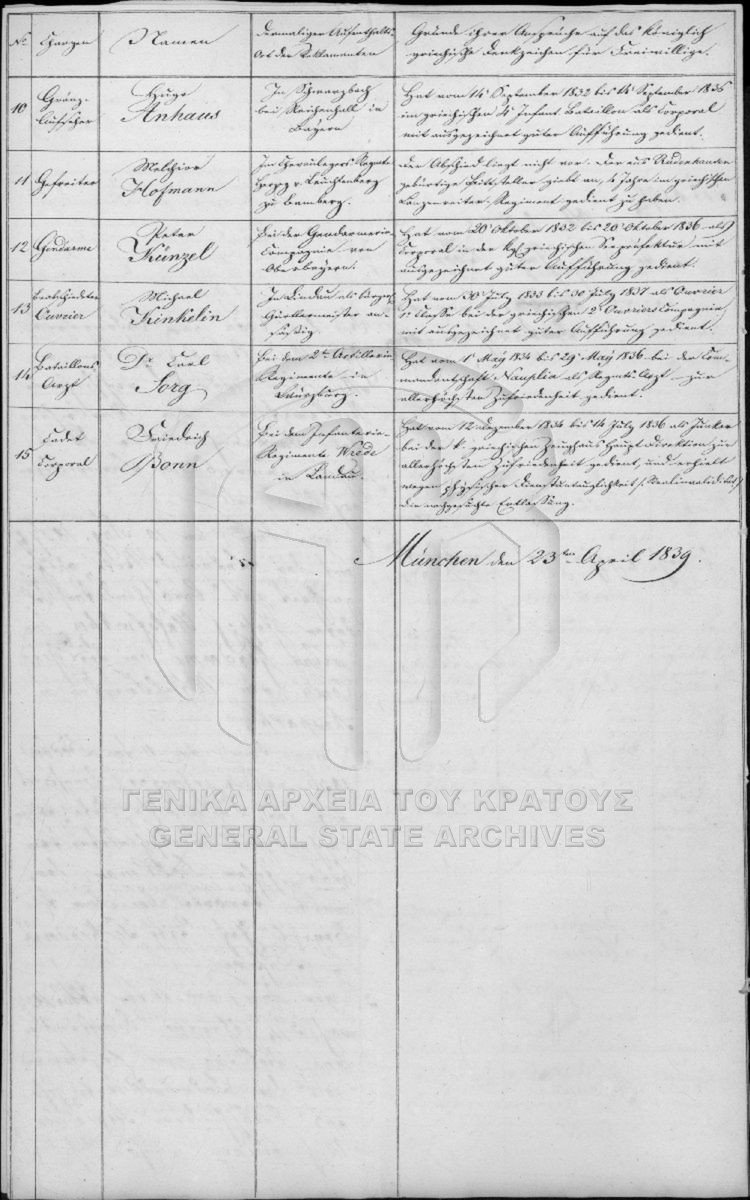 No. Chargen Namen Dermaliger Aufenthalts-
Ort der Reklamanten
Gründe ihrer Ansprüche auf das Königlich
griechische Denkzeichen für Freiwillige.
10 Gränz-
Aufseher
Hugo
Anhaus
In Schwarzbach
bei Reichenhall in
Bayern
Hat vom 14 September 1832 bis 14 September 1836
im griechischen 4 Infant. Bataillon als Corporal
mit ausgezeichnet guter Aufführung gedient.
11 Gefreiter
Melchior
Hofmann
Im Chevaulegers Regmte
Herzog v. Leuchtenberg
zu Bamberg.
Der Abschied liegt nicht vor. Der aus
gebürtige Bittsteller giebt an, 4 Jahre im griechischen
Lanzenreiter-Regiment gedient zu haben.
12 Gendarme
Peter
Künzel
Bei der Gendarmerie
Compagnie von
Oberbayern.
Hat vom 20 Oktober 1832 bis 20 Oktober 1836 als
Corporal in der kgl. griechischen Seepräfektur mit
ausgezeichnet guter Aufführung gedient.
13 Beabschiedeter
Ouvrier
Michael
Kinkelin
In Lindau als bürger
Gürtlermeister an-
säßig.
Hat vom 30 July 1833 bis 30 July 1837 als Ouvrier
Classe bei der griechischen 2 Ouvriers Compagnie
mit ausgezeichnet guter Aufführung gedient.
14 Bataillons
Arzt
Dr. Carl
Sorg
Bei dem 2ten Artillerie
Regimente in
Würzburg.
Hat vom 1 May 1834 bis 29 May 1836 bei der Com-
mandantschaft Nauplia als Regmts Arzt zur
allerhöchsten Zufriedenheit gedient.
15 Cadet
Corporal
Friedrich
Bonn
Bei dem Infanterie-
Regimente Wrede
in Landau.
Hat vom 12 Dezember 1834 bis 14 July 1836 als Junker
bei der k. griechischen Zeughaus Haupt Direktion zur
allerhöchsten Zufriedenheit gedient, und erhielt
wegen physischer Dienstuntauglichkeit /: Realinvalidität :/
die nachgesuchte Entlassung.
München den 23ten April 1839.
ΓΕΝΙΚΑ ΑΡΧΕΙΑ ΤΟΥ ΚΡΑΤΟΥΣ
GENERAL STATE ARCHIVES